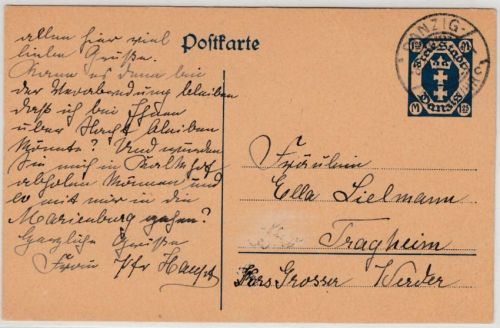 allen hier viel
lieben Grüße.
Kann es denn bei
der Verabredung bleiben
daß ich bei Ihnen
über Nacht bleiben
könnte? Und würden
Sie mich in Kalthof
abholen können und
so mit mir in die
Marienburg gehen?
Herzliche Grüße
Frau Pfr Haupt
Postkarte
DANZIG
Freie Stadt
Danzig
Fräulein
Ella Lielmann
Tragheim
Kers Grosser Werder